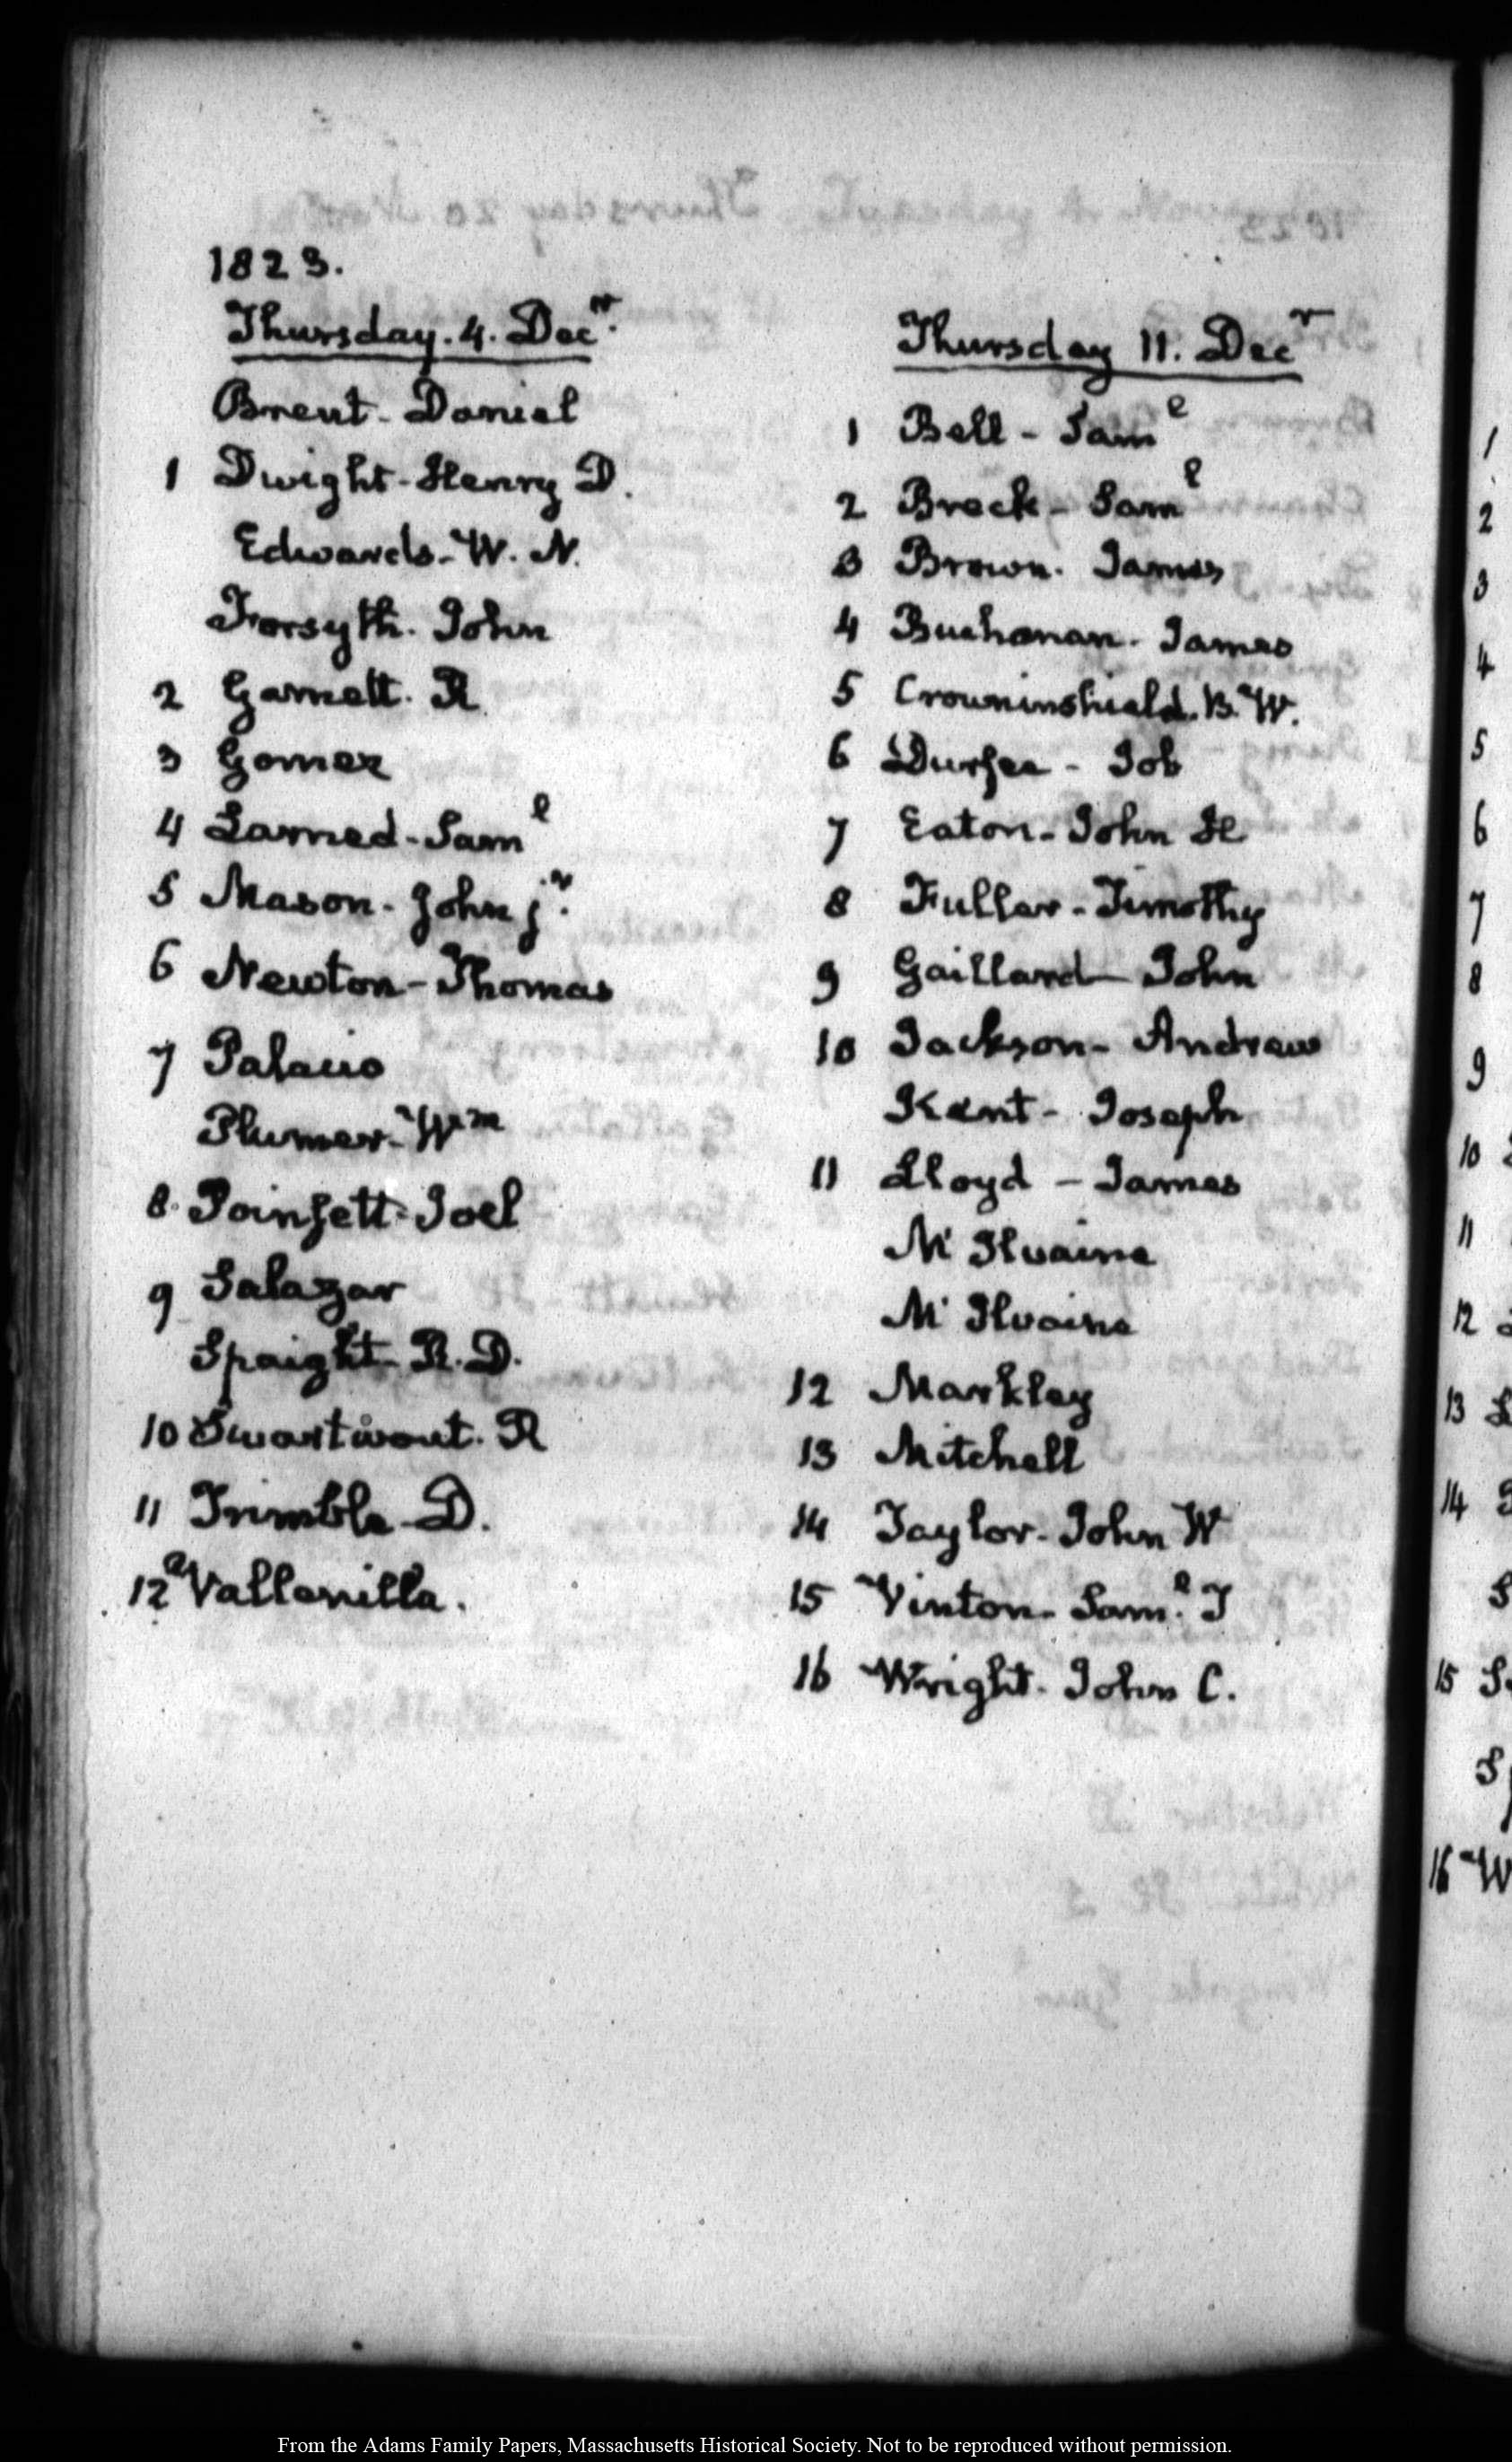 1823.
Thursday. 4. Decr.
Brent - Daniel
1 Dwight - Henry D.
Edwards - W. N.
Forsyth. John
2 Garnett. R
3 Gomez
4 Larned - Saml
5 Mason - John jr.
6 Newton - Thomas
7 Palacio
Plumer - Wm
8. Poinsett - Joel
9 Salazar
Spaight - R. D.
10 Swartwout. R
11 Trimble - D.
12 Vallenilla.
Thursday 11. Decr
1 Bell - Saml
2 Breck - Saml
3 Brown. James
4 Buchanan. James
5 Crowninshield. B. W.
6 Durfee - Job
7 Eaton - John H
8 Fuller - Timothy
9 Gaillard - John
10 Jackson - Andrew
Kent - Joseph
11 Lloyd - James
Mc Ilvaine
Mc Ilvaine
12 Markley
13 Mitchell
14 Taylor - John W
15 Vinton - Saml. F
16 Wright - John C.
1
2
3
4
5
6
7
8
9
10
11
12
13
14
15
16
From the Adams Family Papers, Massachusetts Historical Society. Not to be reproduced without permission.